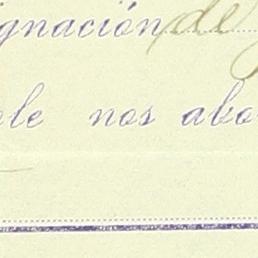 ignación de
ole nos abo